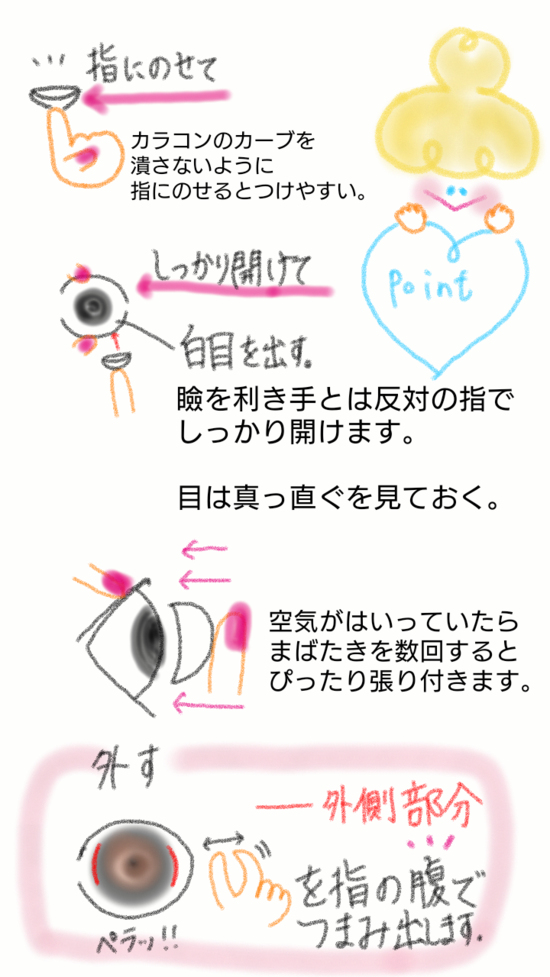 指にのせて
カラコンのカーブを
潰さないように
指にのせるとつけやすい。
Point
しっかり開けて
白目を出す。
瞼を利き手とは反対の指で
しっかり開けます。
目は真っ直ぐを見ておく。
空気がはいっていたら
まばたきを数回すると
ぴったり張り付きます。
外す
外側部分
を指の腹で
つまみ出します。
ペラッ!!